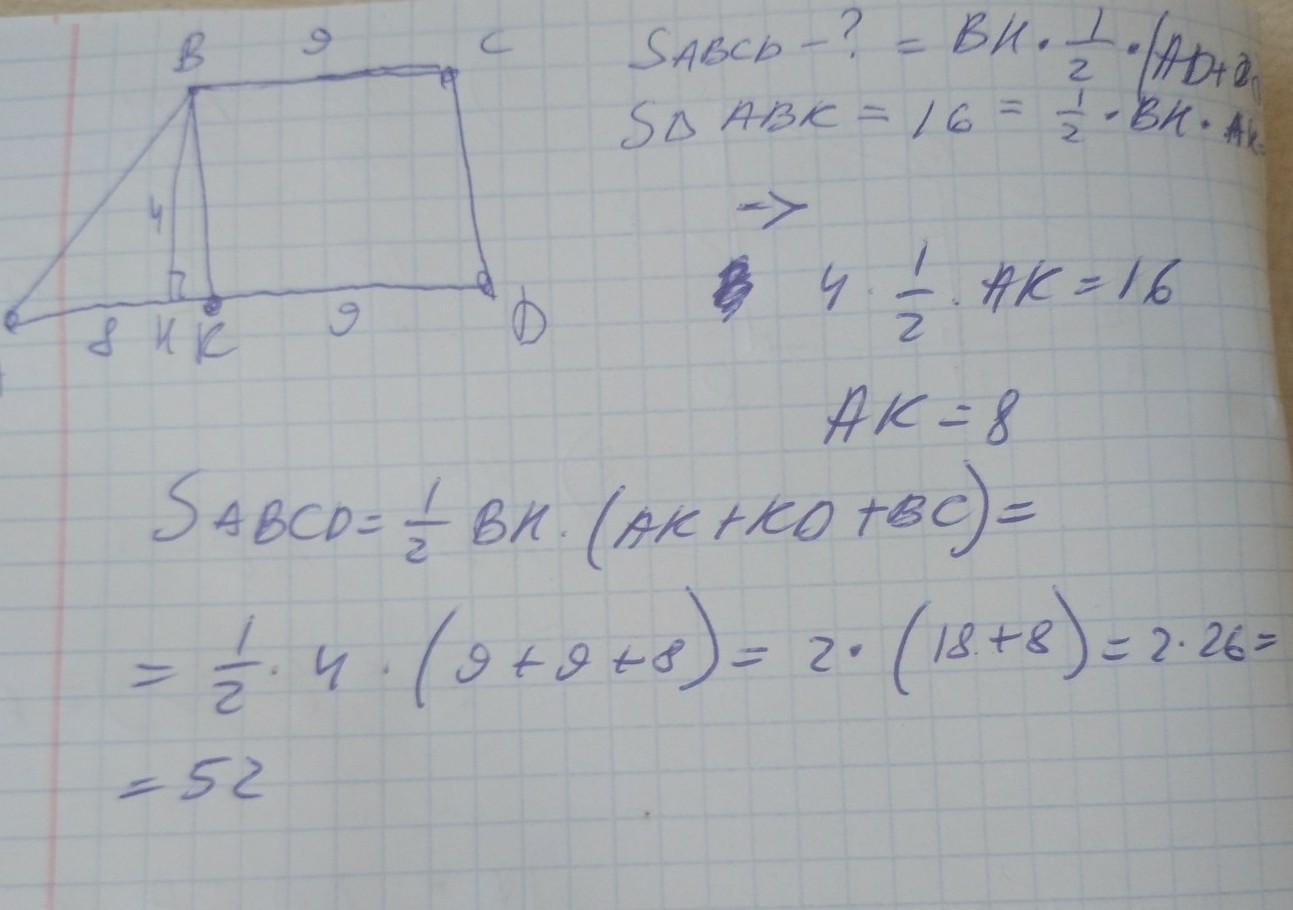 B 9 C
4
8 H K 9 D
SABCD - ? = BH · 1/2 · (AD+
S△ ABK = 16 = 1/2 · BH · AK
->
4 · 1/2 · AK = 16
AK = 8
SABCD = 1/2 BH · (AK + KD + BC) =
= 1/2 · 4 · (9 + 9 + 8) = 2 · (18 + 8) = 2 · 26 =
= 52